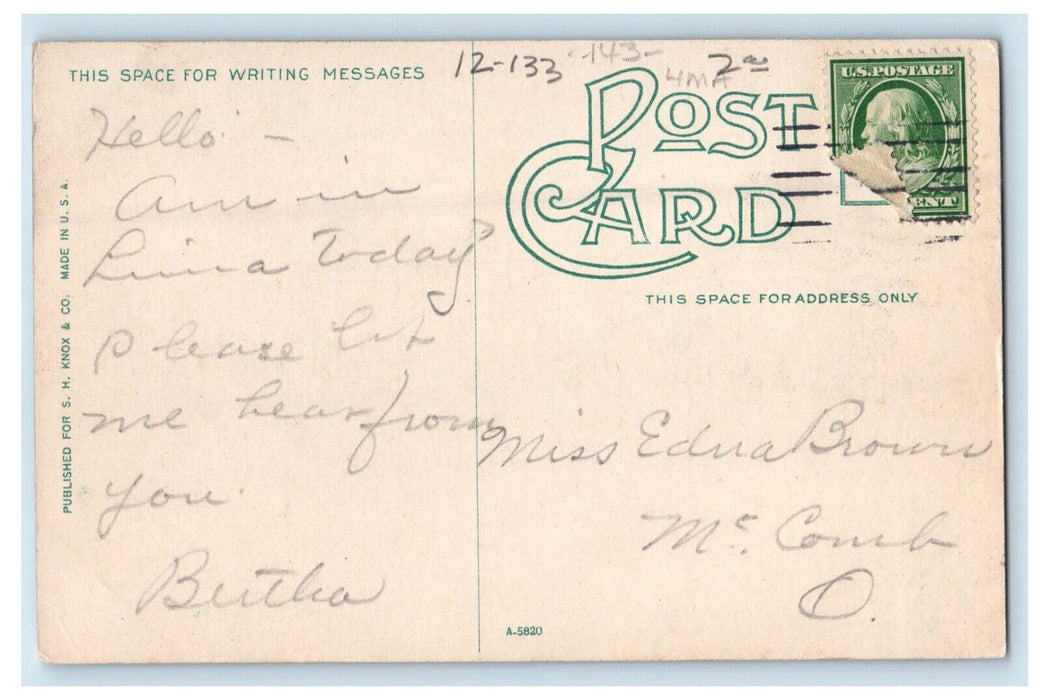 THIS SPACE FOR WRITING MESSAGES
12-133 -143- 2⁰⁰
4MA
POST
CARD
U.S. POSTAGE
CENT
THIS SPACE FOR ADDRESS ONLY
PUBLISHED FOR S. H. KNOX & CO. MADE IN U. S. A.
Hello -
Am in
Lima today
please let
me hear from
you.
Bertha
Miss Edna Brown
Mc. Comb
O.
A-5820